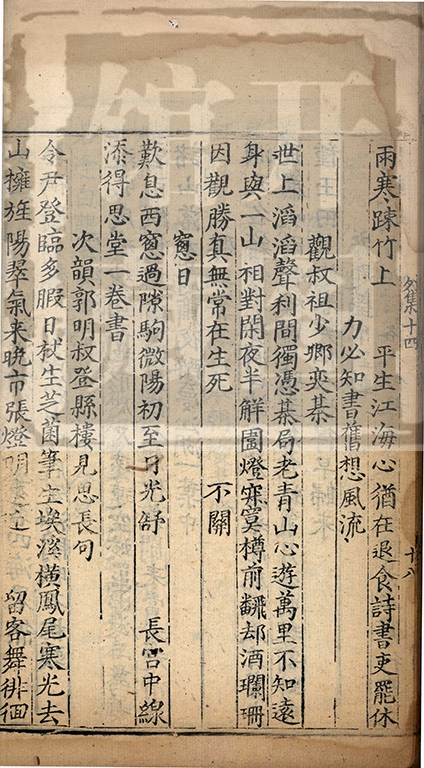 外集十四
十八
雨寒踈竹上　平生江海心猶在退食詩書吏罷休
力必知書舊想風流
觀叔祖少卿奕棊
世上滔滔聲利間獨憑棊局老青山心遊萬里不知遠
身與一山相對閑夜半解圍燈寂寞樽前翻却酒瓓珊
因觀勝真無常在生死　不關
窻日
歎息西窻過隙駒微陽初至日光舒　長宮中線
添得思堂一卷書
次韻郭明叔登縣樓見思長句
令尹登臨多暇日杖生芝菌筆生埃溪横鳳尾寒光去
山擁旌陽翠氣来晚市張燈明　留客舞徘徊